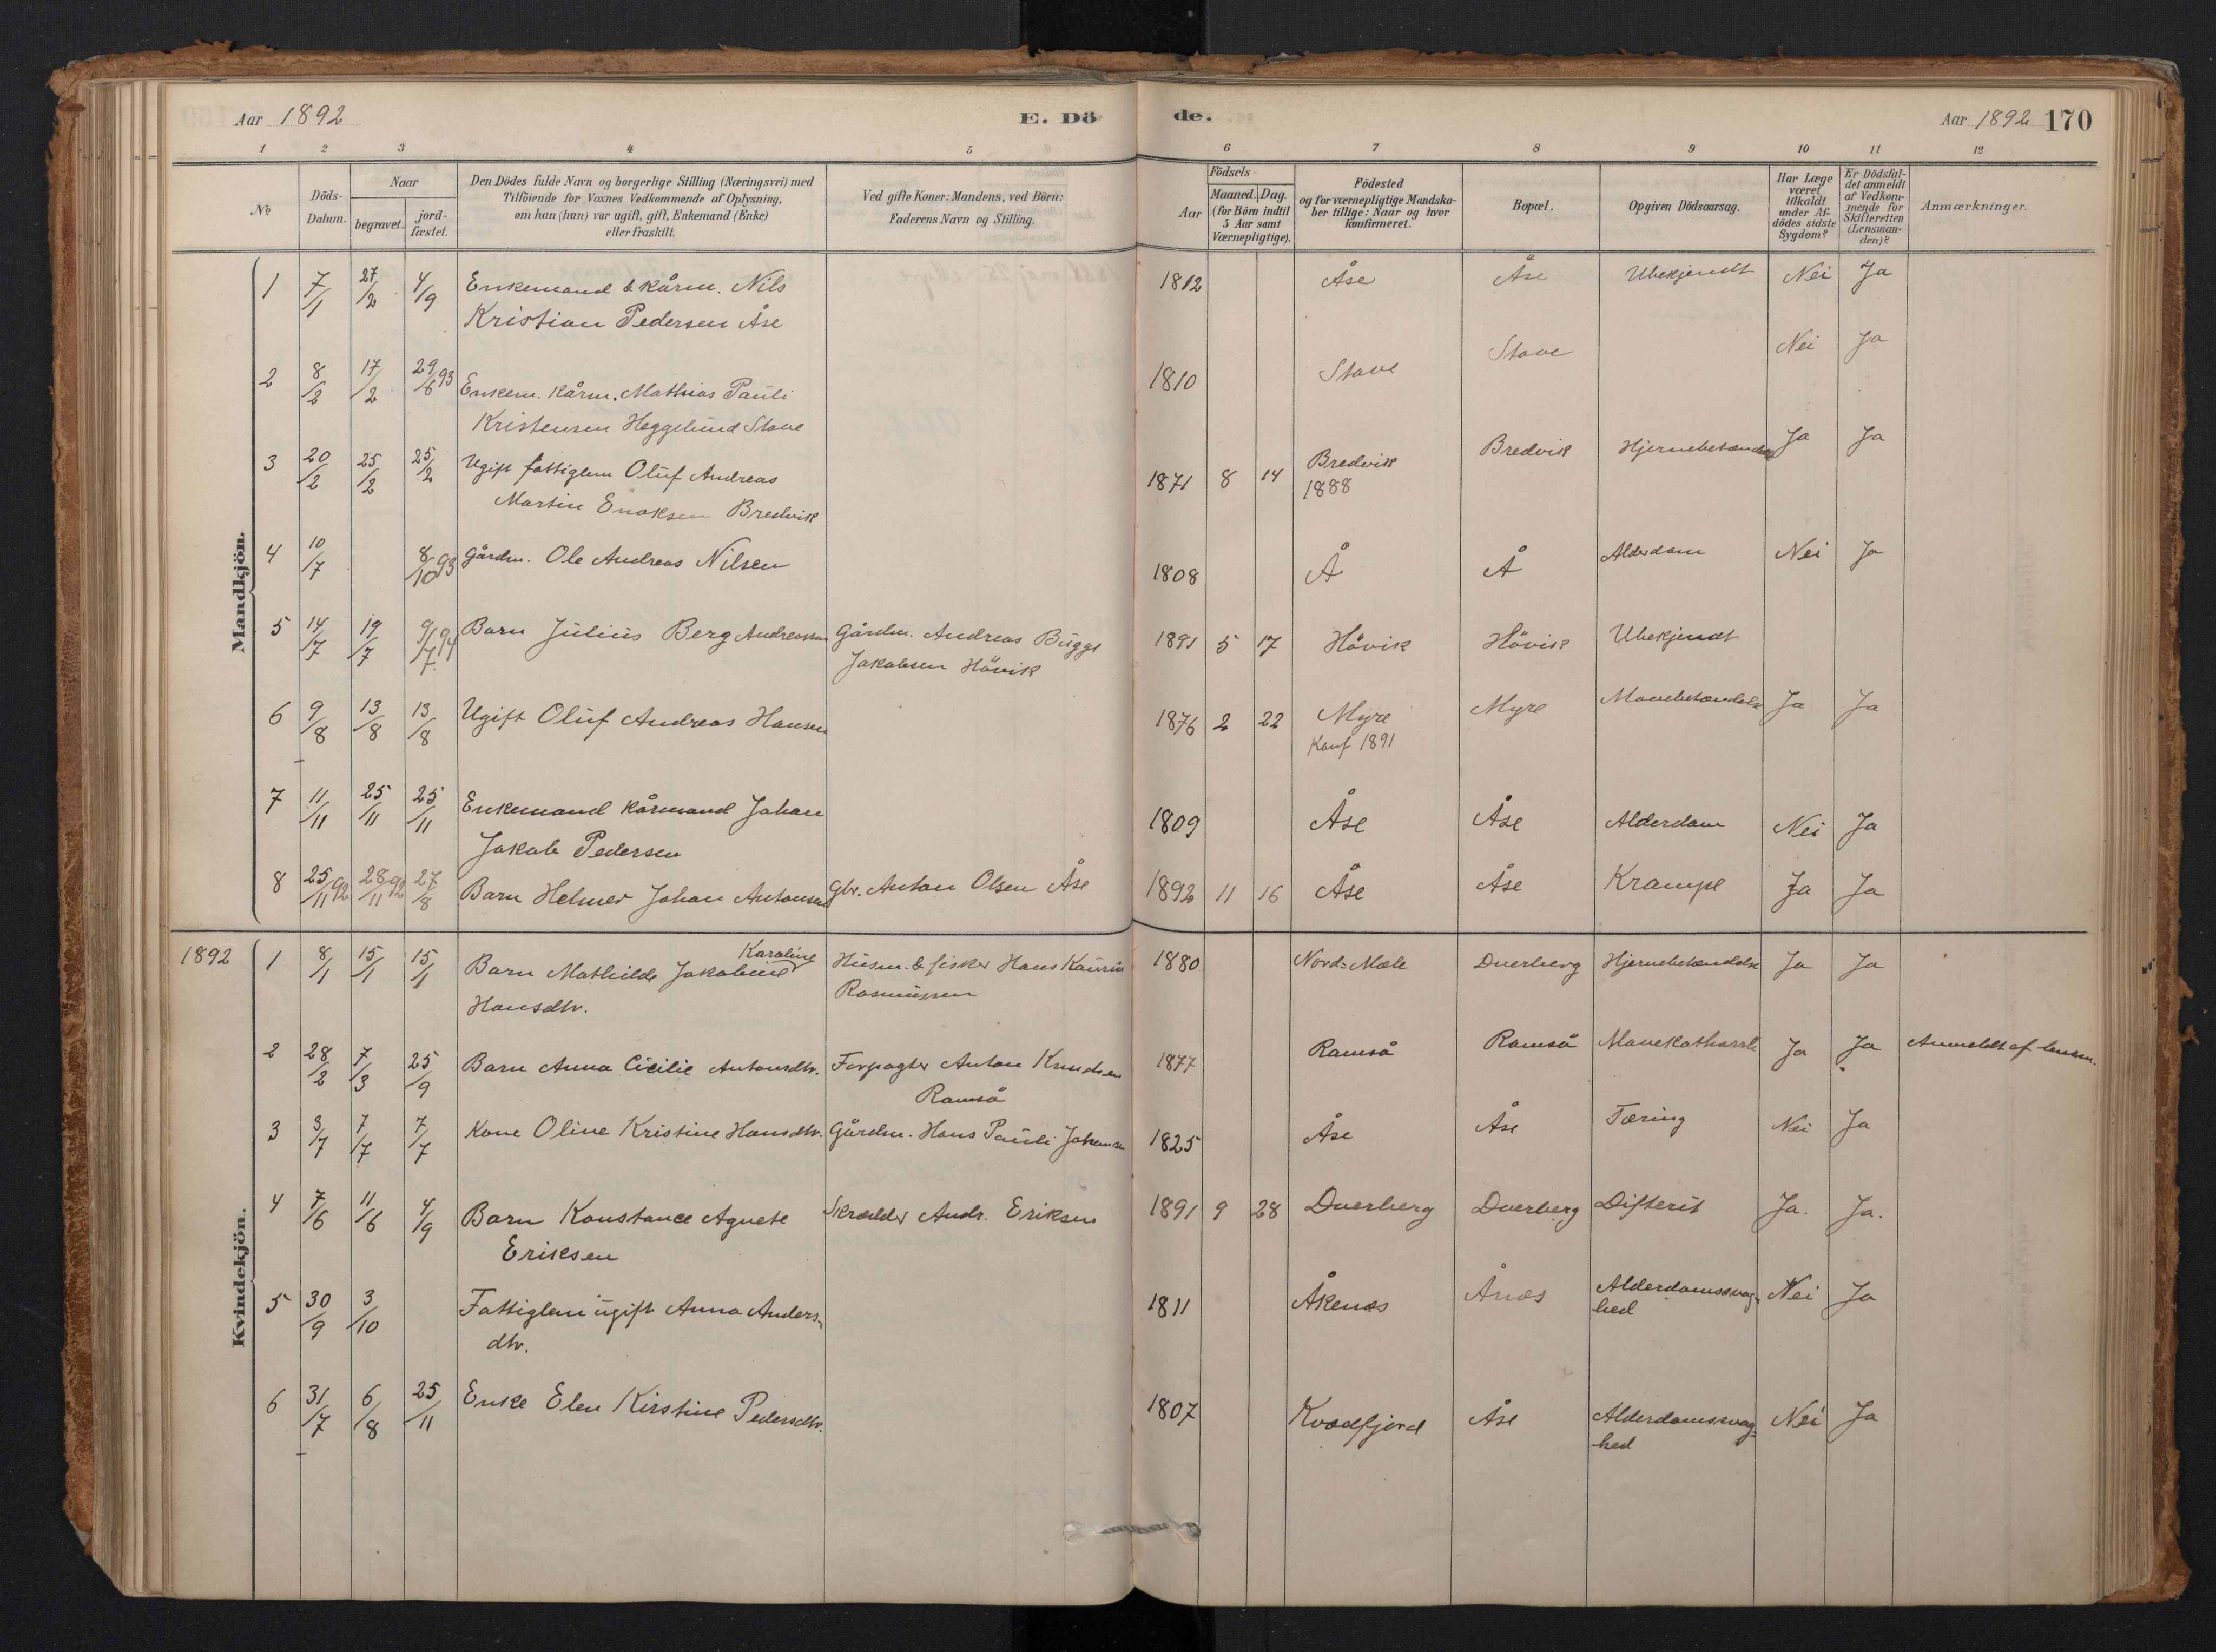 Aar 1892 E. Dö
1 2 3 4 5
No Döds-Datum. Naar begravet. jordfæstet. Den Dödes fulde Navn og borgerlige Stilling (Næringsvei) med Tilföiende for Voxnes Vedkommende af Oplysning, om han (hun) var ugift, gift, Enkemand (Enke) eller fraskilt. Ved gifte Koner: Mandens, ved Börn: Faderens Navn og Stilling.
de. Aar 1892 170
6 7 8 9 10 11 12
Födsels- Aar Maaned. Dag. (for Börn indtil 5 Aar samt Værnepligtige). Födested og for værnepligtige Mandskaber tillige: Naar og hvor konfirmeret. Bopæl. Opgiven Dödsaarsag. Har Læge været tilkaldt under Afdödes sidste Sygdom? Er Dödsfaldet anmeldt af Vedkommende for Skifteretten (Lensmanden)? Anmærkninger.
Mandkjön.
1 7/1 27/2 4/9 Enkemand & kårm. Nils 1812 Åse Åse Ubekjendt Nei Ja
Kristian Pedersen Åse
2 8/2 17/2 29/6 93 Enkem. kårm. Mathias Pauli 1810 Stave Stave Nei Ja
Kristensen Heggelund Stave
3 20/2 25/2 25/2 Ugift fattiglem Oluf Andreas 1871 8 14 Bredvik Bredvik Hjernebetændelse Ja Ja
Martin Enoksen Bredvik 1888
4 10/7 8/10 93 Gårdm. Ole Andreas Nilsen 1808 Å Å Alderdom Nei Ja
5 14/7 19/7 9/7 94 Barn Julius Berg Andreassen Gårdm. Andreas Bugge 1891 5 17 Hövik Hövik Ubekjendt
Jakobsen Hövik
6 9/8 13/8 13/8 Ugift Oluf Andreas Hansen 1876 2 22 Myre Myre Mavebetændelse Ja Ja
Konf 1891
7 11/11 25/11 25/11 Enkemand kårmand Johan 1809 Åse Åse Alderdom Nei Ja
Jakob Pedersen
8 25/11 92 28/11 92 27/8 Barn Helmer Johan Antonsen Gbr. Anton Olsen Åse 1892 11 16 Åse Åse Krampe Ja Ja
1892
Kvindekjön.
1 8/1 15/1 15/1 Barn Mathilde Jakobine Karoline Husm. & fisker Hans Kaurin 1880 Nord-Mæle Dverberg Hjernebetændelse Ja Ja
Hansdtr. Rasmussen
2 28/2 7/3 25/9 Barn Anna Cicilie Antonsdtr. Forpagter Anton Knudsen 1877 Ramså Ramså Mavekatharrh Ja Ja Anmeldt af lensm.
Ramså
3 3/7 7/7 7/7 Kone Oline Kristine Hansdtr. Gårdm. Hans Pauli Johansen 1825 Åse Åse Tæring Nei Ja
4 7/6 11/6 4/9 Barn Konstance Agnete Skrædder Andr. Eriksen 1891 9 28 Dverberg Dverberg Difterit Ja. Ja.
Eriksen
5 30/9 3/10 Fattiglem ugift Anna Anders- 1811 Åkenæs Ånæs Alderdomssvag- Nei Ja
dtr. hed
6 31/7 6/8 25/11 Enke Elen Kirstine Pedersdtr. 1807 Kvædfjord Åse Alderdomssvag- Nei Ja
hed